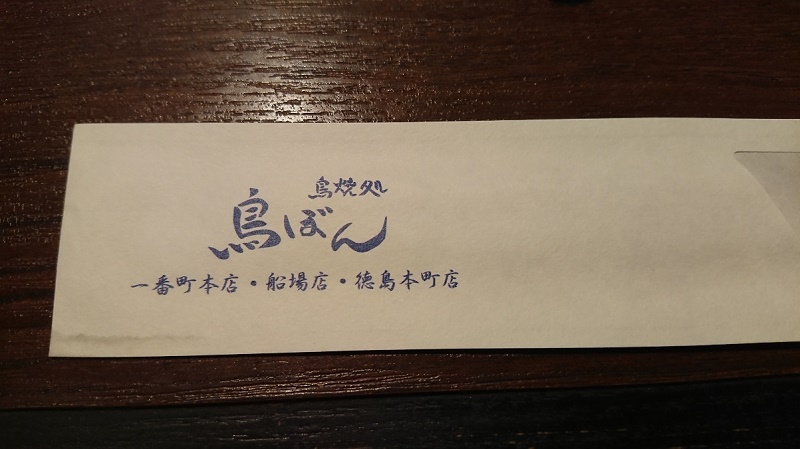 鳥焼処
鳥ぼん
一番町本店・船場店・徳島本町店